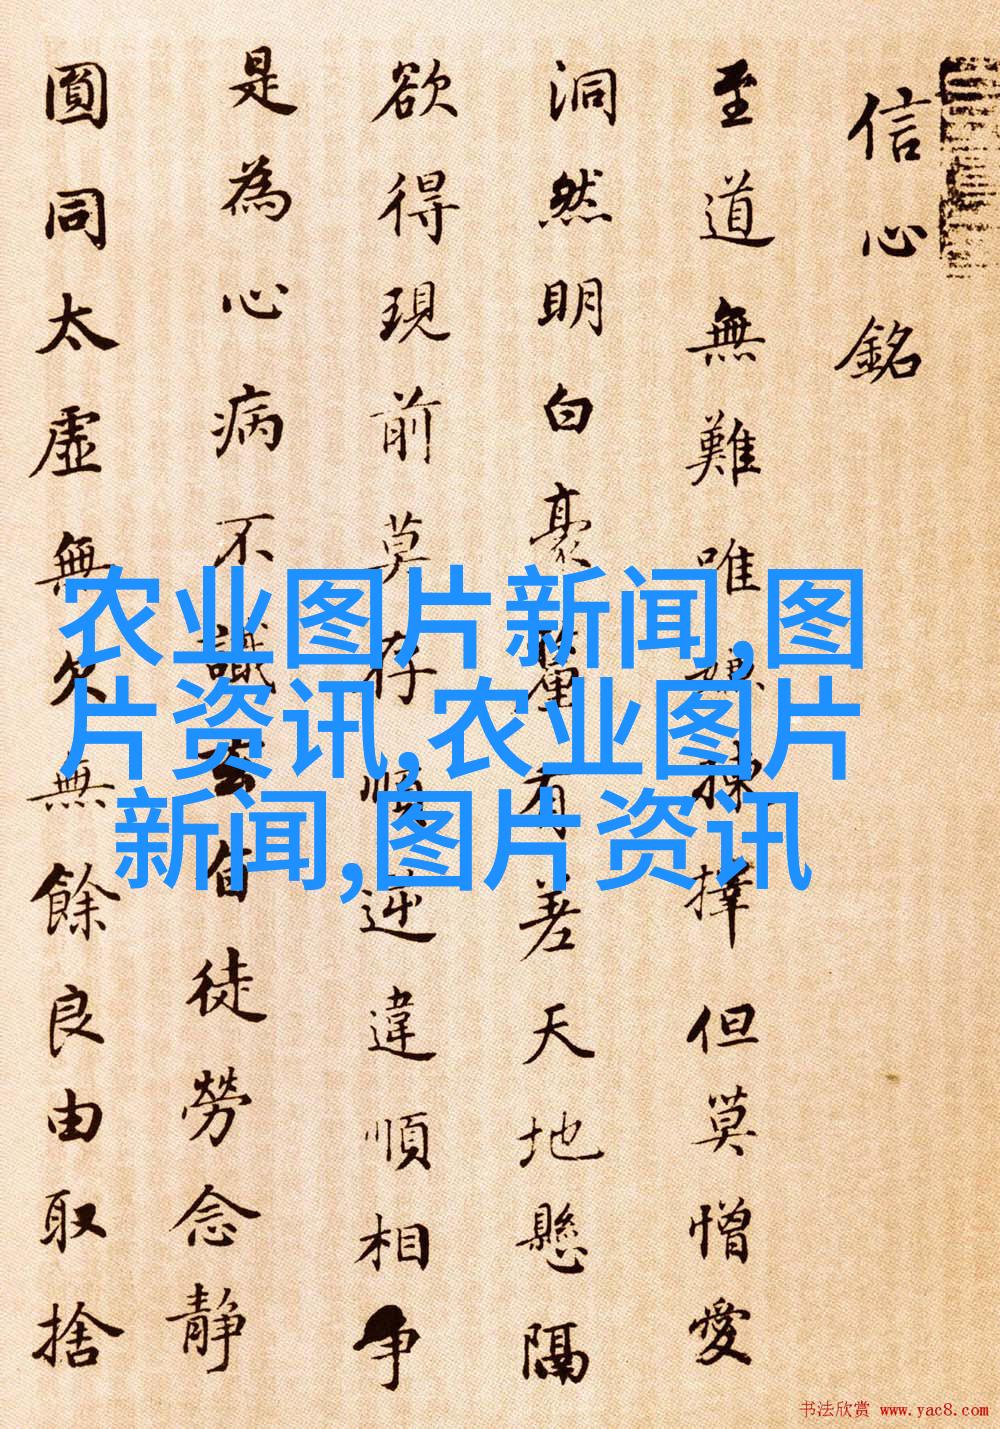 信心銘
至道無難唯嫌揀擇但莫憎愛
洞然明白豪釐有差天地懸隔
欲得現前莫存順逆違順相爭
是為心病不識玄旨徒勞念静
圓同太虛無欠無餘良由取捨
农业图片新闻,图
片资讯,农业图片
新闻,图片资讯
书法欣赏 www.yac8.com